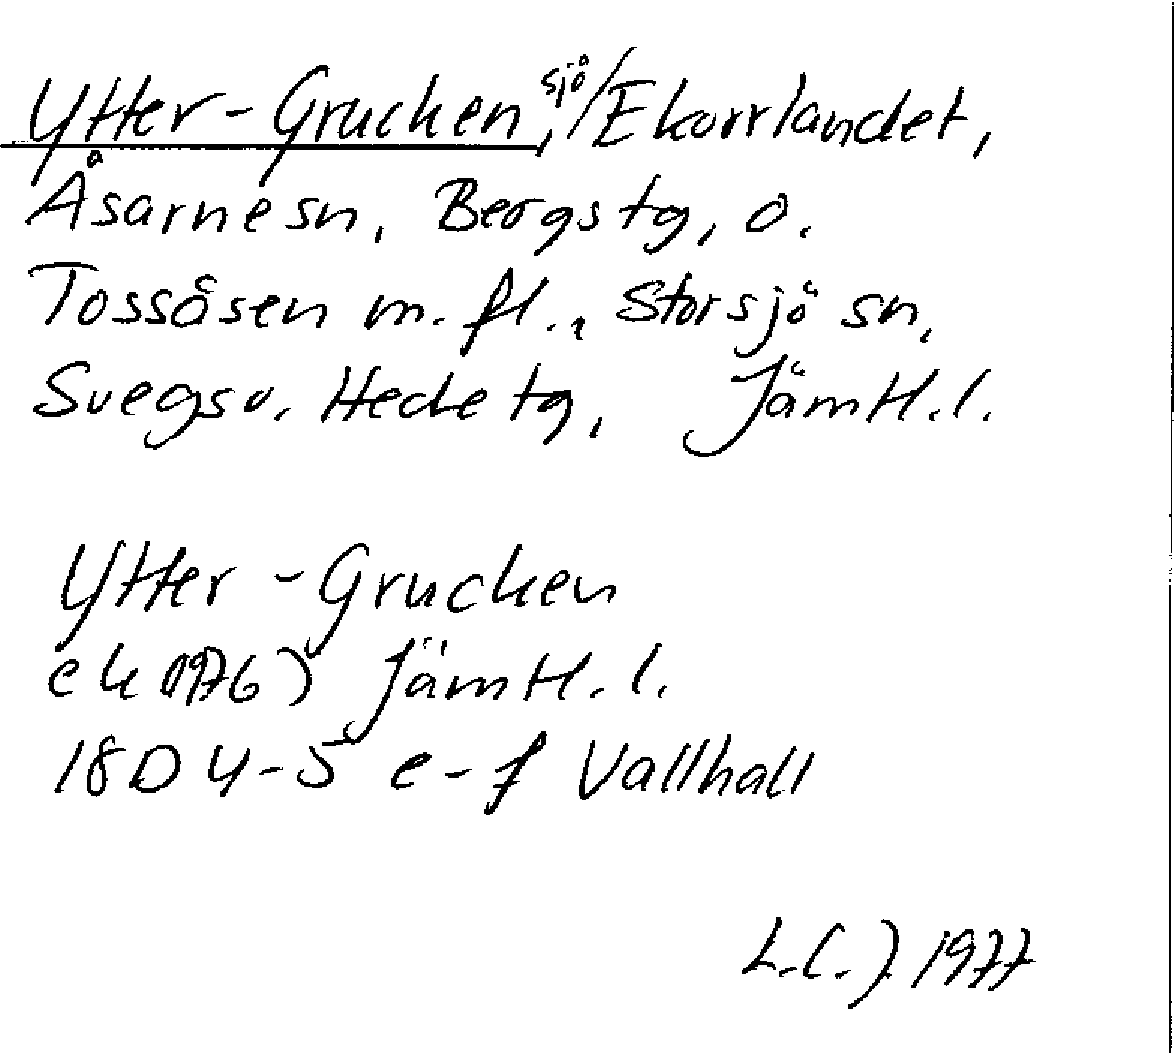 Ytter-Grucken, sjö/Ekorrlandet,
Åsarne sn, Bergs tg, o.
Tossåsen m. fl., Storsjö sn,
Svegs o. Hede tg, Jämtl. l.
Ytter-Grucken
ek (1976) Jämtl. l.
18D 4-5 e-f Vallhall
L.C.J. 1977